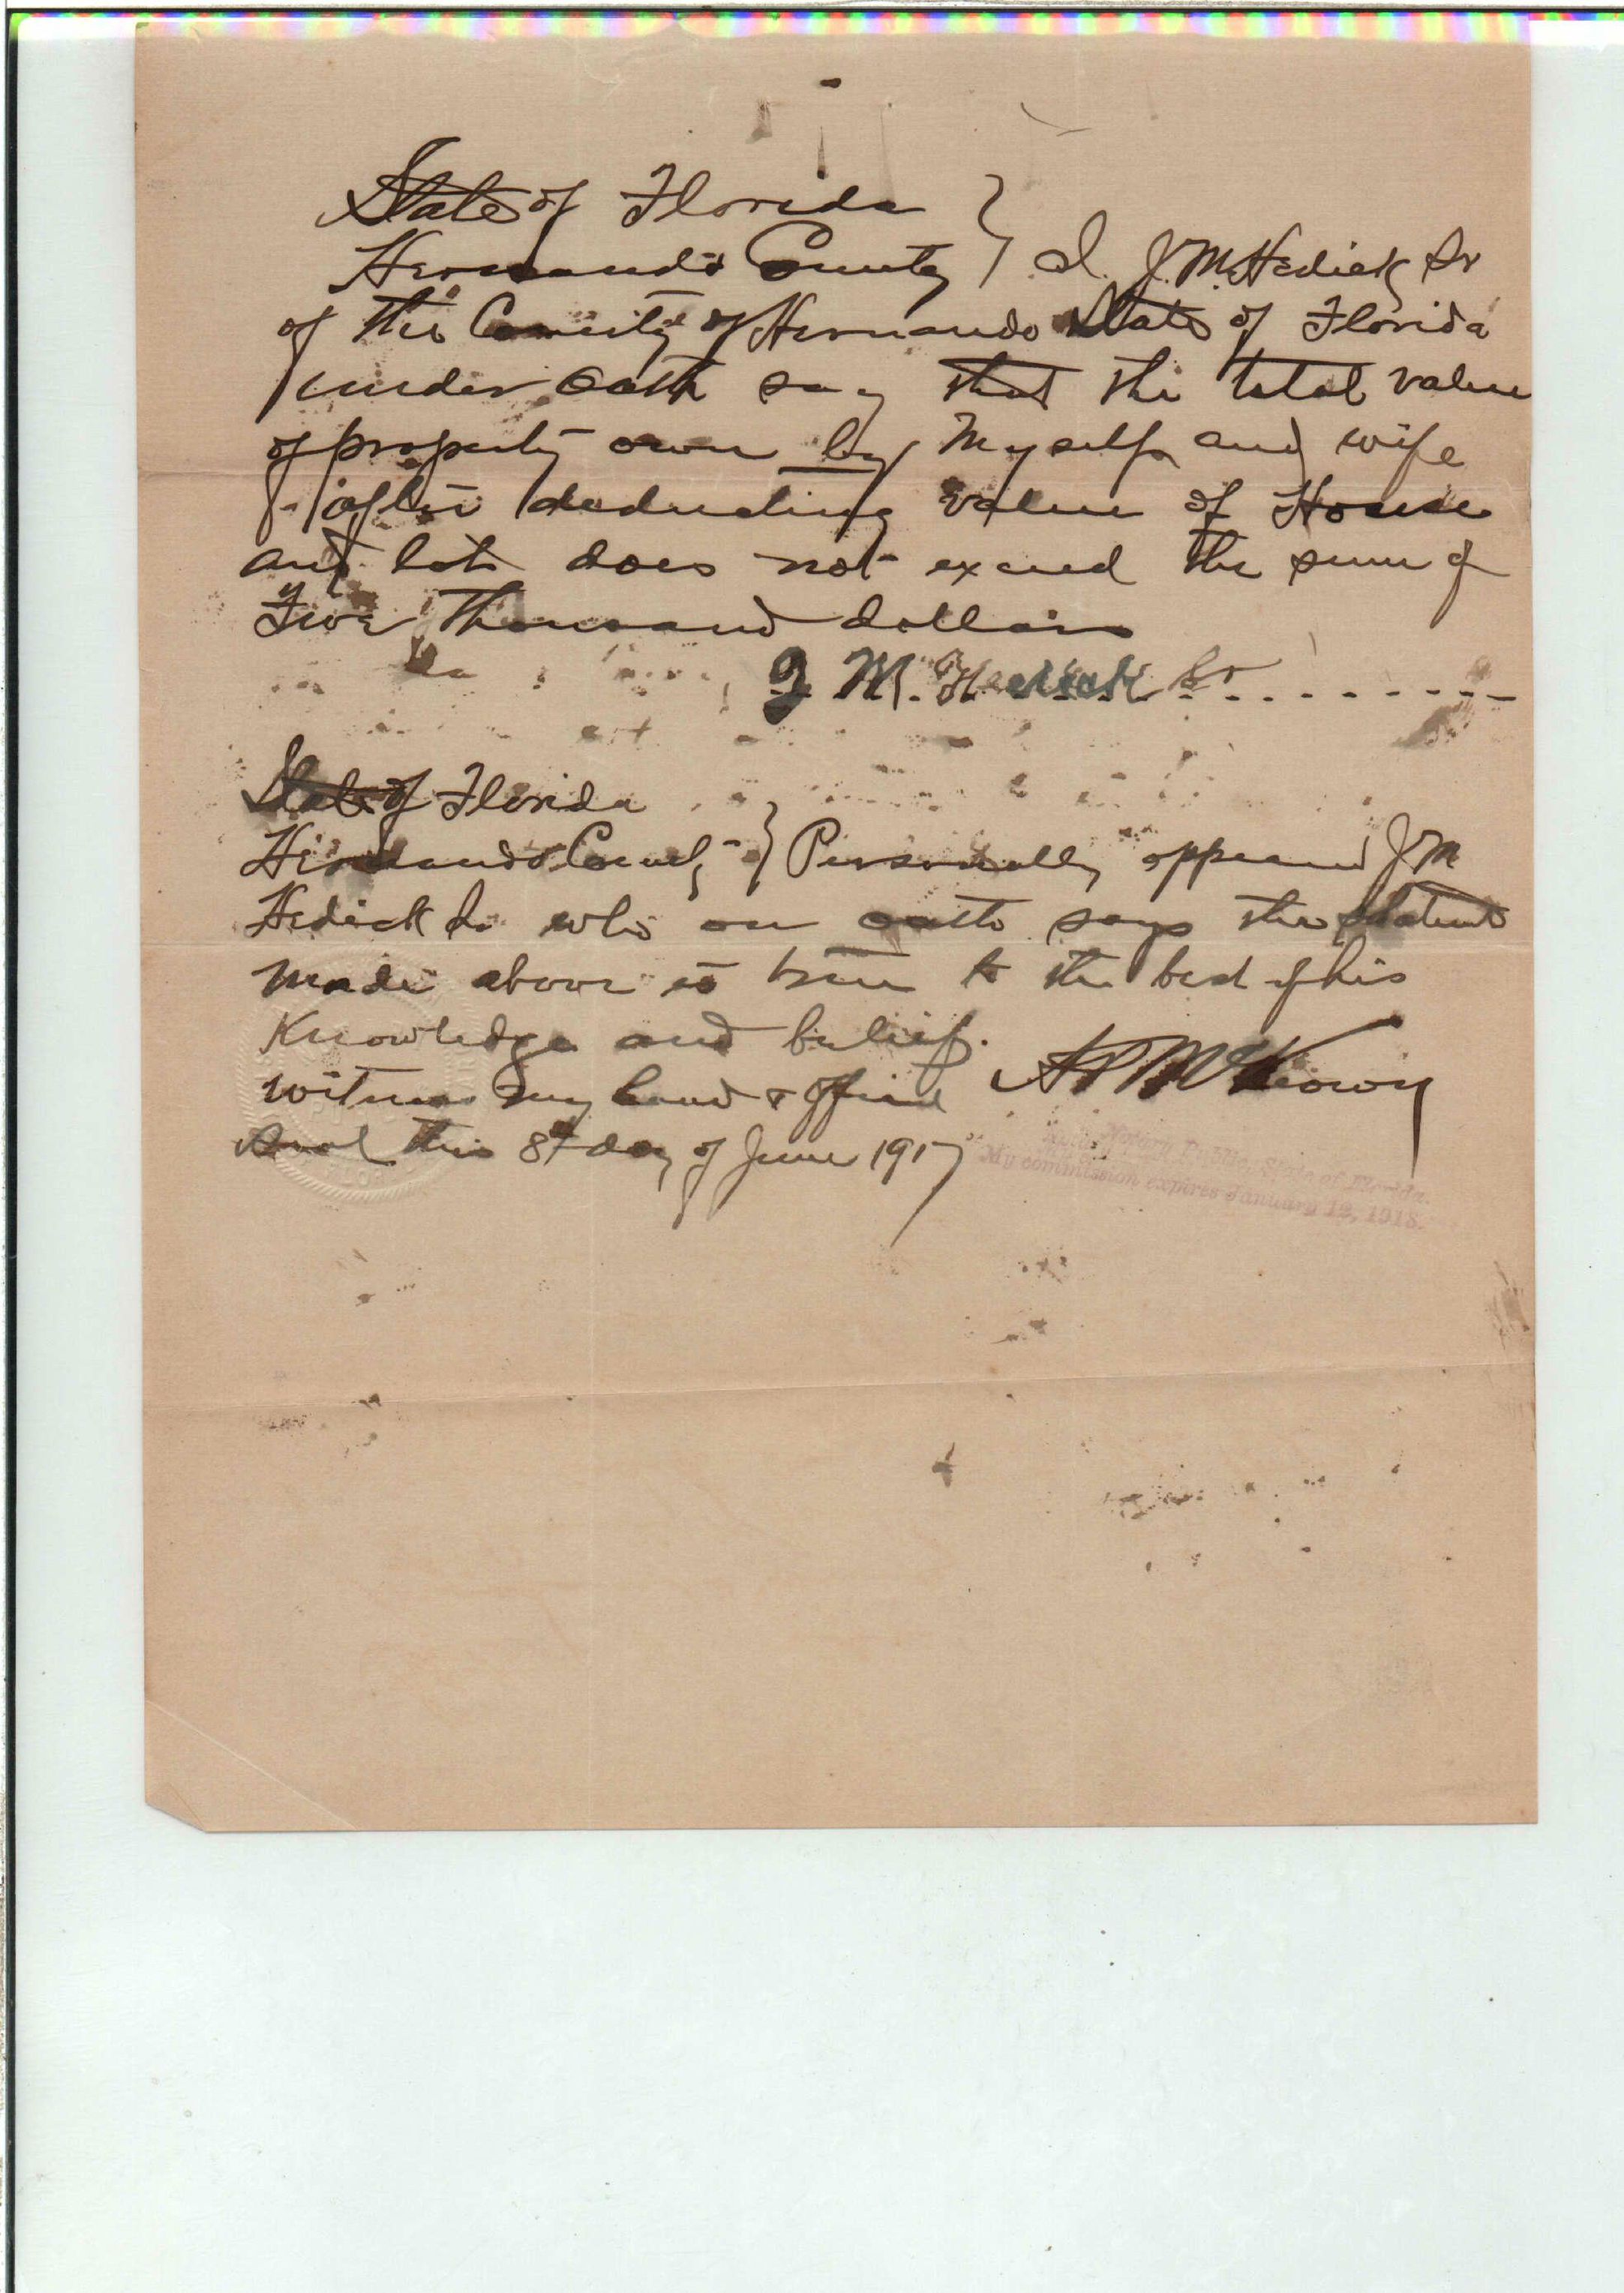 State of Florida }
Hernando County } I. J. M. Hedick Sr
of the County of Hernando State of Florida
under oath say that the total value
of property own by Myself and wife
after deducting value of House
and lot does not exceed the sum of
Five Thousand dollars
J M. Hedick Sr
State of Florida
Hernando County } Personally appeared J M
Hedick Sr who on oath says the statement
made above is true to the best of his
Knowledge and belief.
Witness my hand & official
Seal this 8th day of June 1917
McKeown
Notary Public, State of Florida.
My commission expires January 12, 1918.